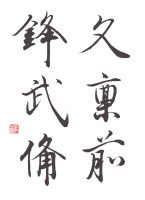 文稟前
鋒武備